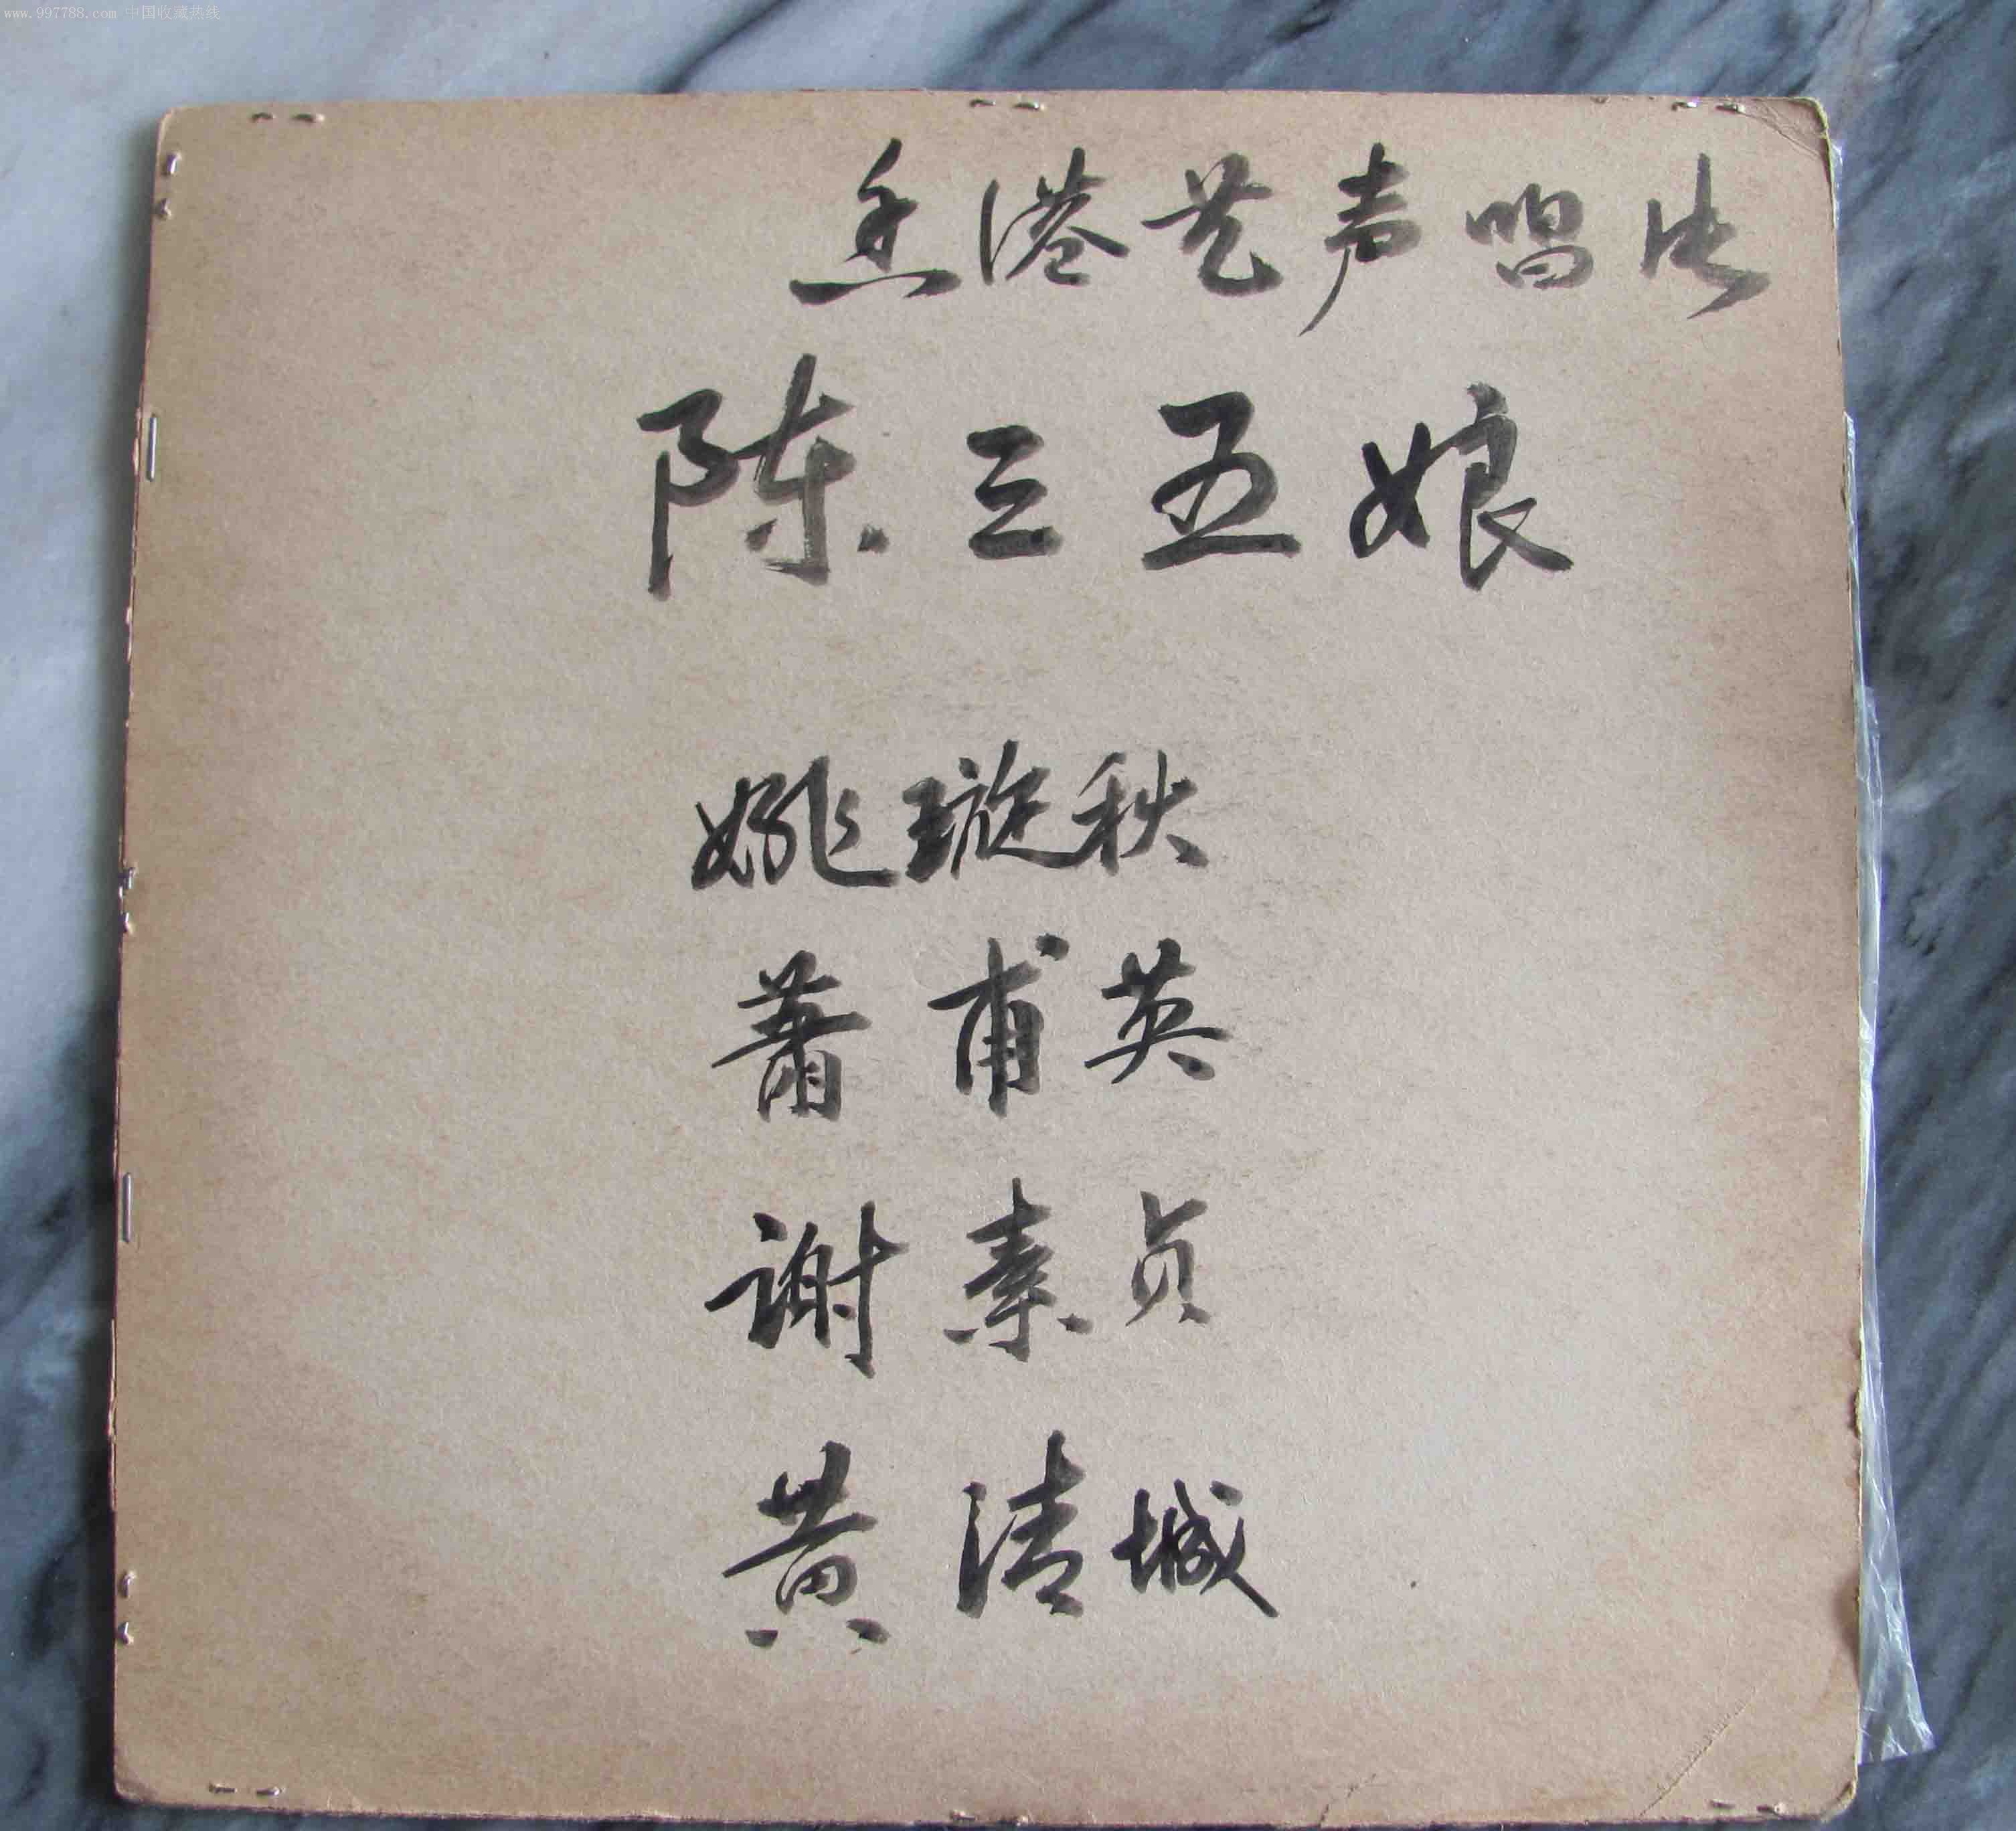 www.997788.com 中国收藏热线
香港艺声唱片
陈三五娘
姚璇秋
萧甫英
谢素贞
黄清城